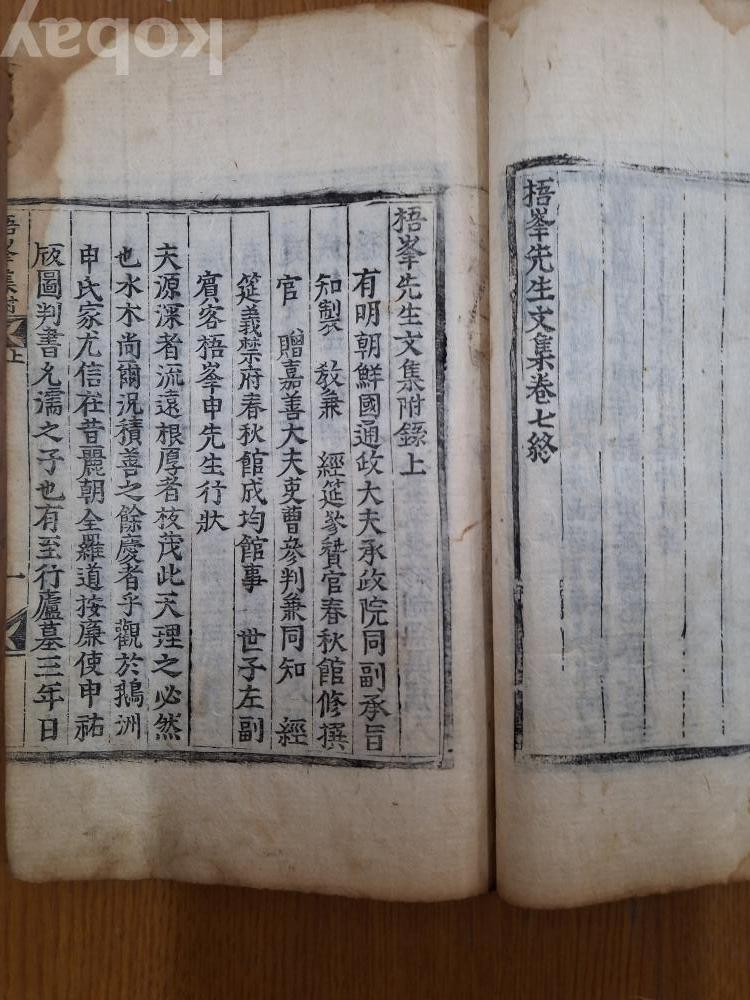 梧峯先生文集卷七終
梧峯先生文集附錄上
有明朝鮮國通政大夫承政院同副承旨
知製 敎兼 經筵叅賛官春秋館修撰
官 贈嘉善大夫吏曹參判兼同知 經
筵義禁府春秋館成均館事 世子左副
賓客梧峯申先生行狀
夫源深者流遠根厚者枝茂此天理之必然
也水木尚爾況積善之餘慶者乎觀於鵝洲
申氏家尤信在昔麗朝全羅道按廉使申祐
版圖判書允濡之子也有至行廬墓三年日
梧峯集附 上
一
kobay